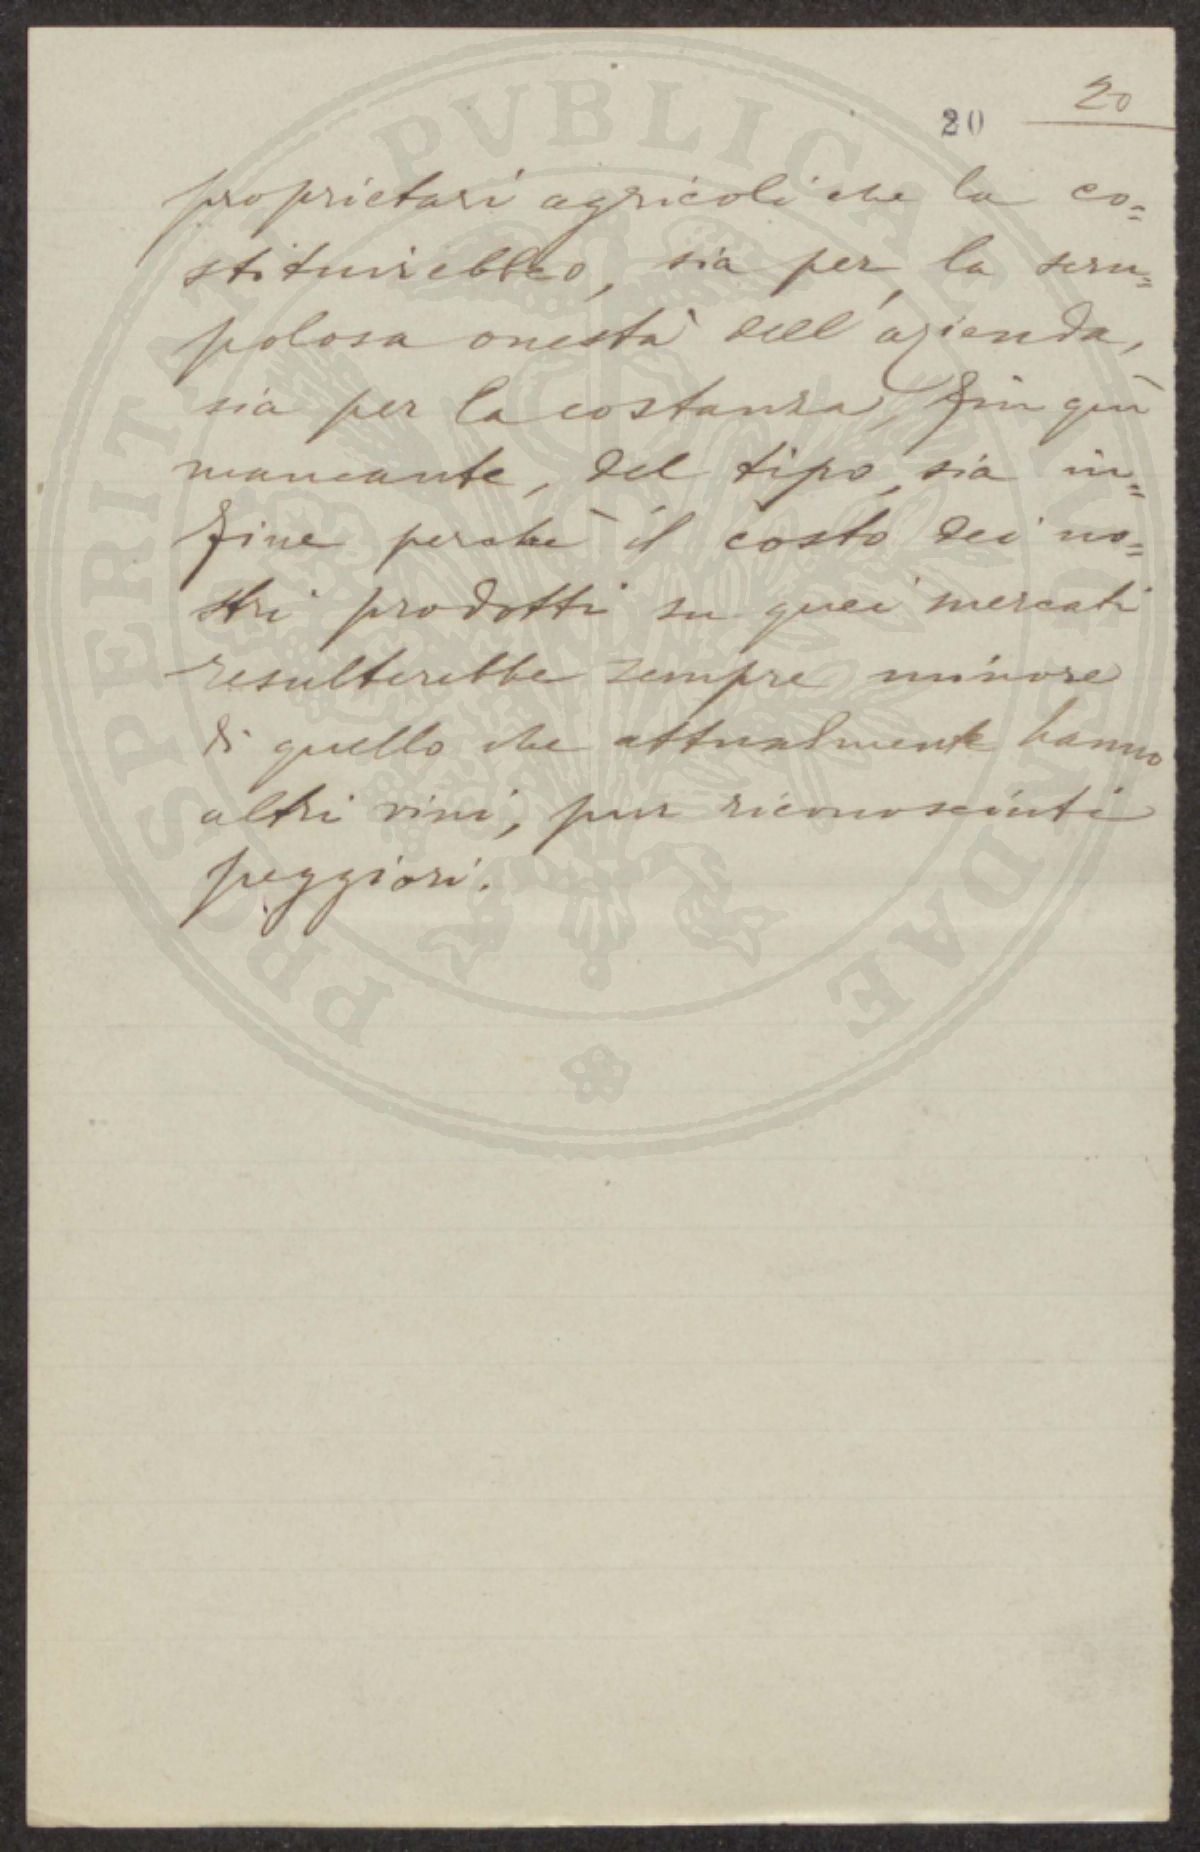 20 20
proprietari agricoli che la co=
stituirebbero, sia per la scru=
polosa onestà dell'azienda,
sia per la costanza, fin quì
mancante, del tipo, sia in=
fine perchè il costo dei no=
stri prodotti su quei mercati
resulterebbe sempre minore
di quello che attualmente hanno
altri vini, pur riconosciuti
peggiori.
PROSPERITATI PVBLICAE AVGENDAE